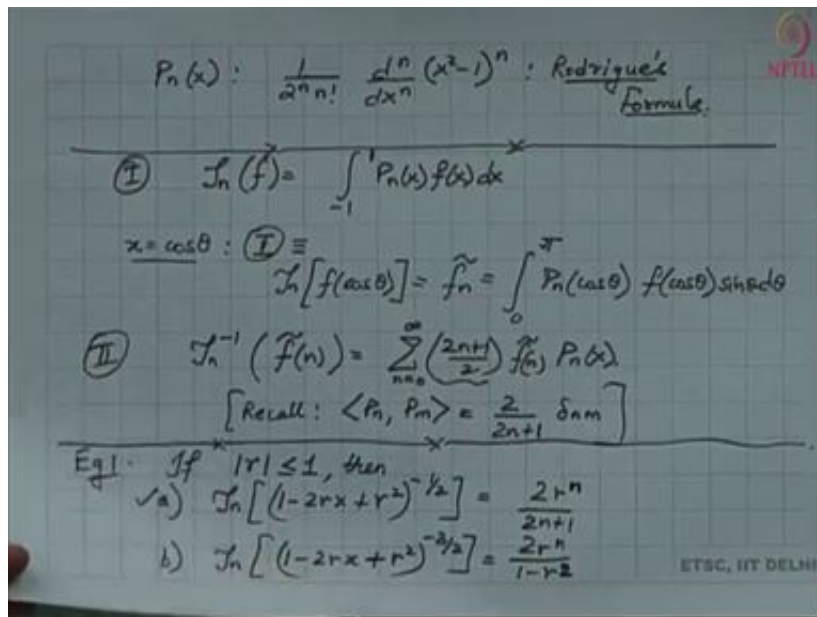 NPTEL
Pn(x) : 1/(2^n n!) d^n/dx^n (x²-1)^n : Rodrigue's
Formula.
(I) Jn(f) = ∫_{-1}^{1} Pn(x) f(x) dx
x = cosθ : (I) ≡
Jn[f(cosθ)] = f̃n = ∫_0^π Pn(cosθ) f(cosθ) sinθ dθ
(II) Jn^{-1}(f̃(n)) = Σ_{n=0}^{∞} ((2n+1)/2) f̃(n) Pn(x).
[Recall : <Pn, Pm> = 2/(2n+1) δnm]
Eg1. If |r| ≤ 1, then
✓a) Jn[(1-2rx+r²)^{-1/2}] = 2r^n/(2n+1)
b) Jn[(1-2rx+r²)^{-3/2}] = 2r^n/(1-r²)
ETSC, IIT DELHI